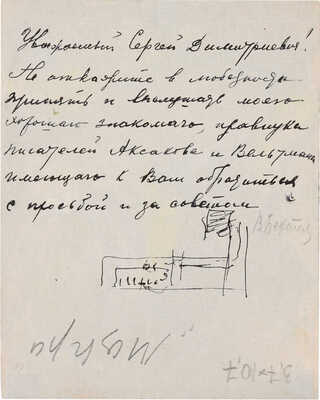 Уважаемый Сергей Димитриевич!
Не откажите в любезности
принять и выслушать моего
хорошаго знакомаго, правнука
писателей Аксакова и Вельтмана
имеющаго к Вам обратиться
с просьбой и за советом
3,7×10,7